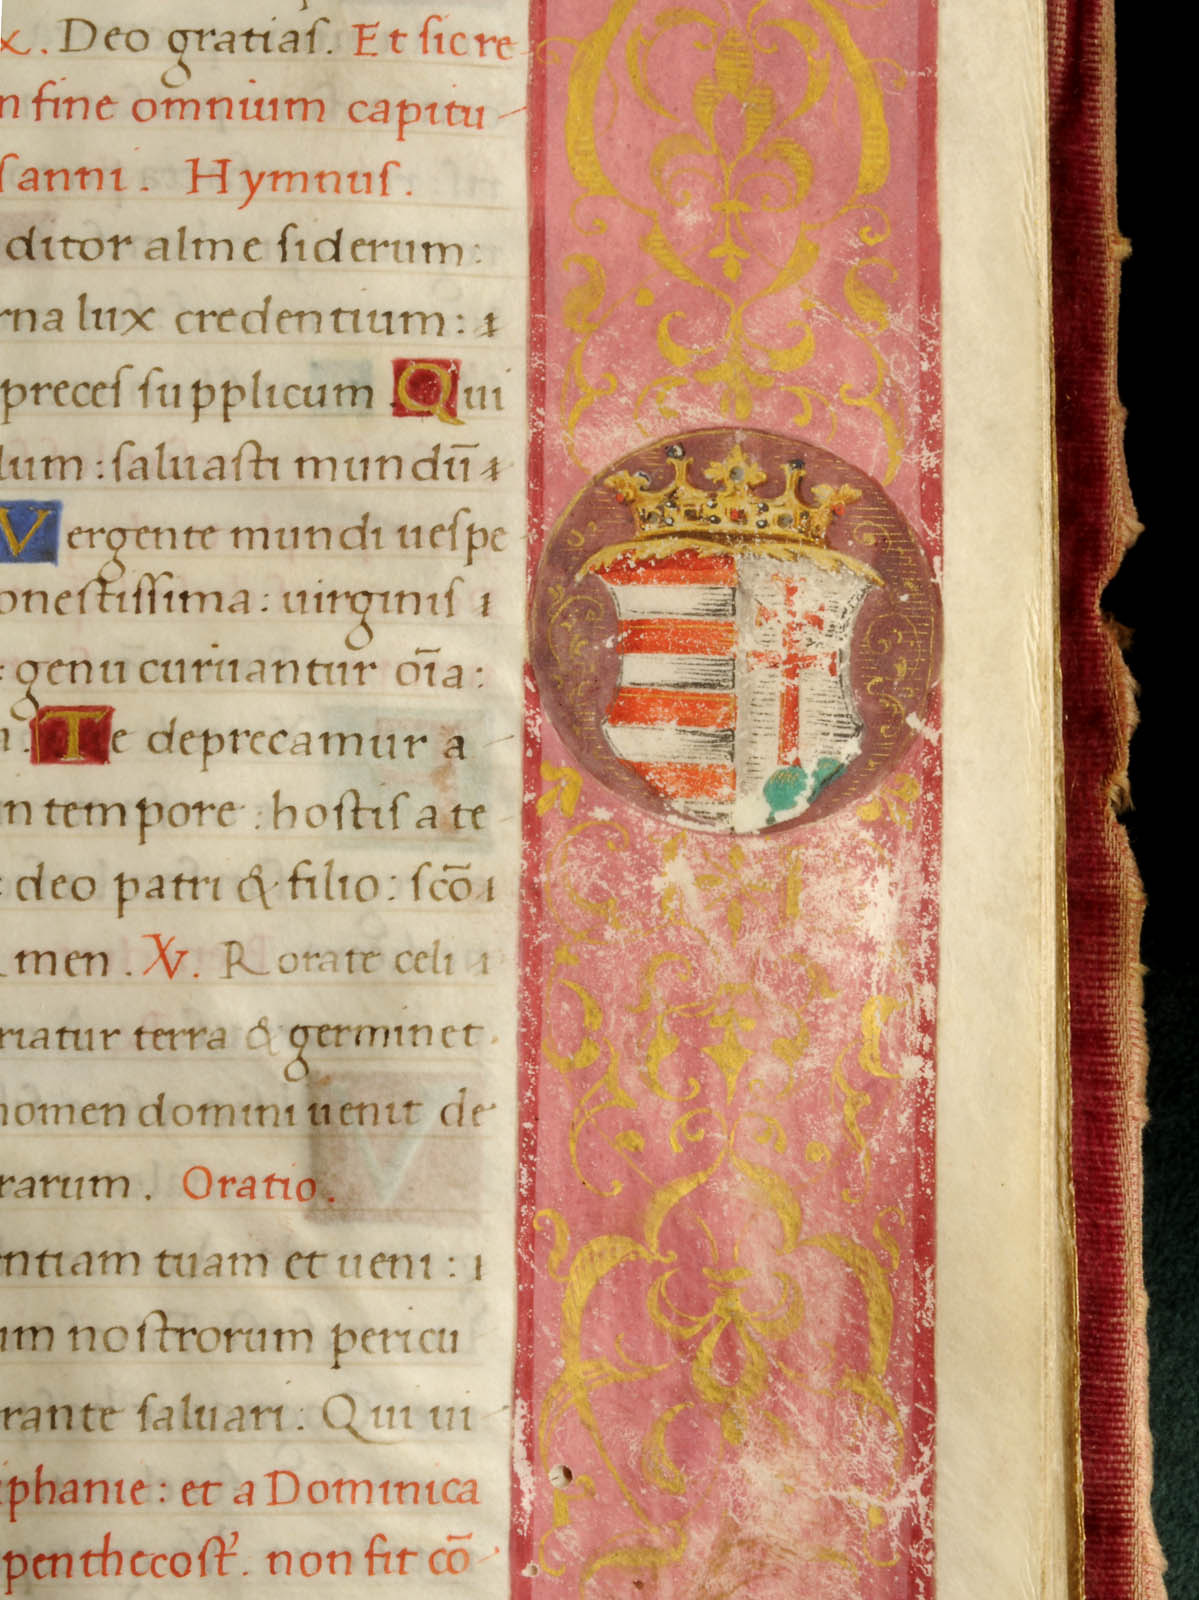 x. Deo gratias. Et sic re
n fine omnium capitu
s anni. Hymnus.
ditor alme siderum:
rna lux credentium:
preces supplicum. Qui
lum: saluasti mundū
Vergente mundi uespe
onestissima: uirginis
: genu curuantur oīa:
Te deprecamur a
n tempore: hostis a te
: deo patri & filio: scō
men. V. Rorate celi
riatur terra & germinet
nomen domini uenit de
rarum. Oratio.
ntiam tuam et ueni:
um nostrorum pericu
rante saluari. Qui ui
iphanie: et a Dominica
penthecost'. non fit cō